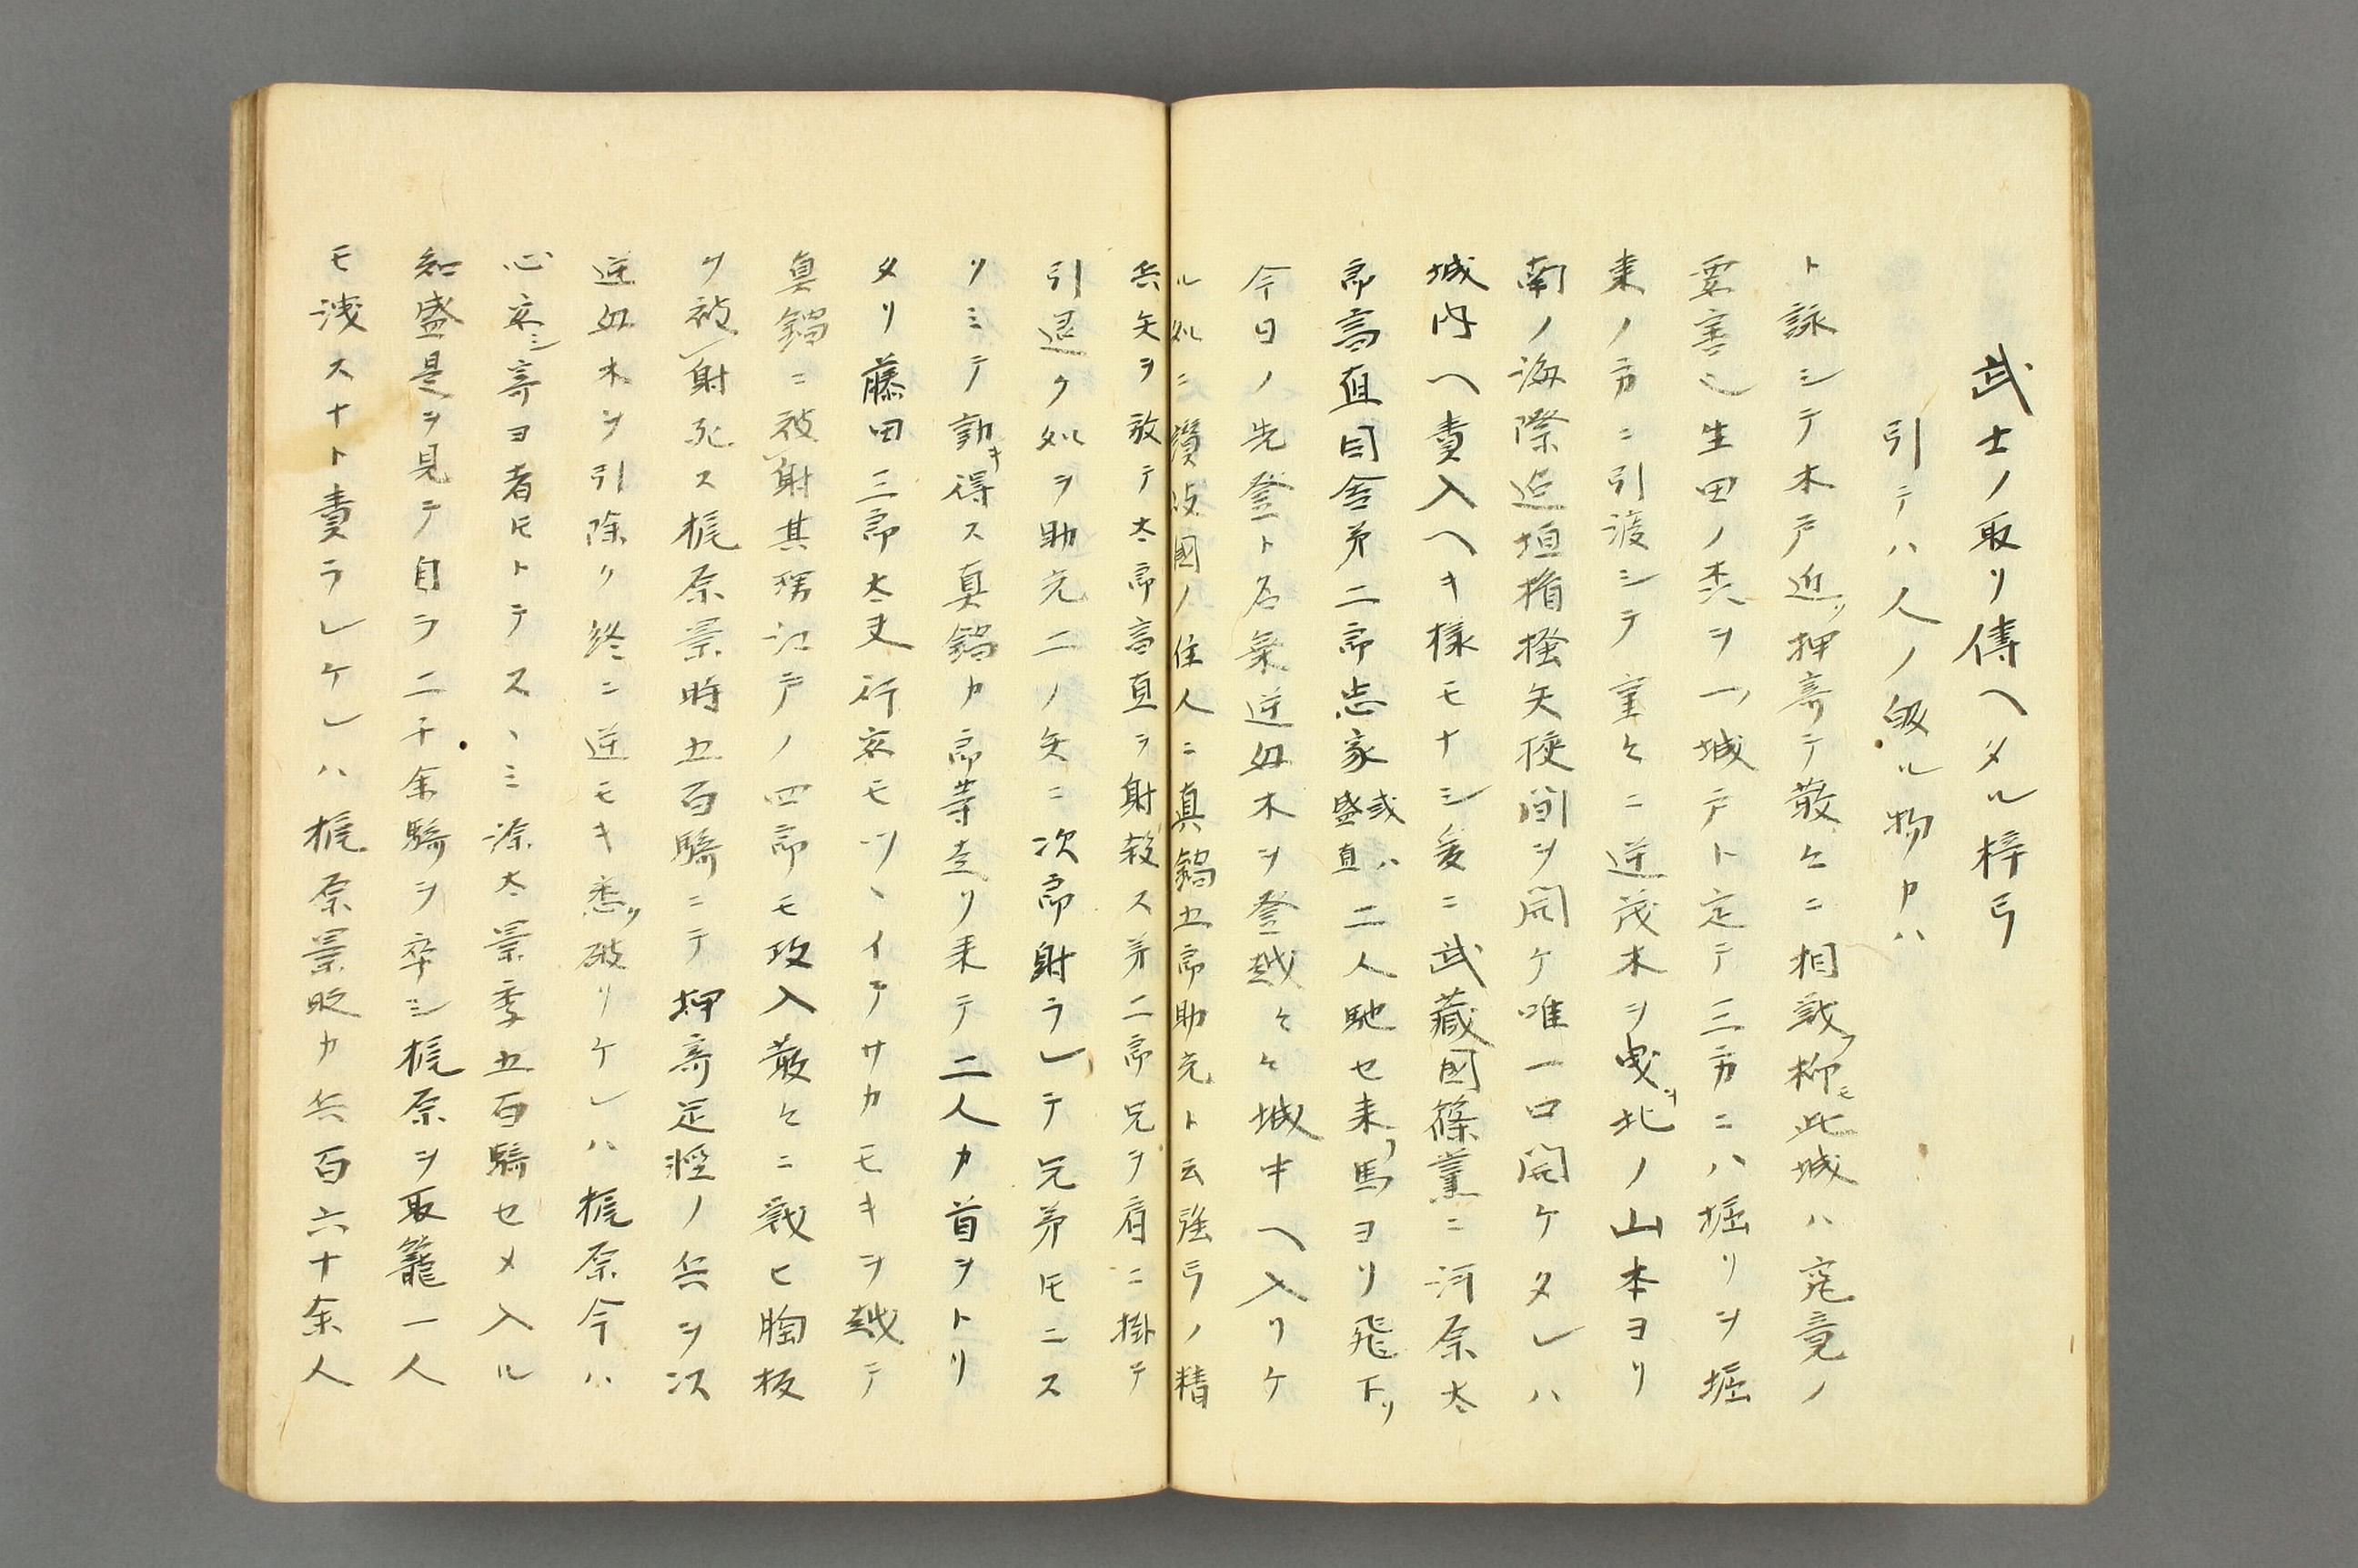 武士ノ取リ傳ヘタル梓弓
引テハ人ノ皈ル物カハ
ト詠シテ木戸近ク押寄テ散々ニ相戦フ抑モ此城ハ究竟ノ
要害也生田ノ森ヲ一ノ城戸ト定テ三方ニハ堀リヲ堀
東ノ方ニ引渡シテ重々ニ逆茂木ヲ曳ク北ノ山本ヨリ
南ノ海際迠垣楯掻矢狭間ヲ開ケ唯一口開ケタレハ
城内ヘ責入ヘキ様モナシ爰ニ武藏國篠黨ニ河原太
郎高直同舍弟二郎忠家或ハ盛直二人馳セ来リ馬ヨリ飛下リ
今日ノ先登ト名乗逆奴木ヲ登越々々城中ヘ入リケ
ル処ニ讃岐國ノ住人ニ真鍋五郎助光ト云強弓ノ精
兵矢ヲ放テ太郎高直ヲ射殺ス弟二郎兄ヲ肩ニ掛テ
引退ク処ヲ助光二ノ矢ニ次郎射ラレテ兄弟モニス
リミテ動キ得ス真鍋カ郎等走リ来テ二人カ首ヲトリ
タリ藤田三郎太夫行安モツヽイテサカモキヲ越テ
真鍋ニ被射其甥江戸ノ四郎モ攻入散々ニ戦ヒ胸板
ヲ被射死ス梶原景時五百騎ニテ押寄足軽ノ兵ヲ以
逆奴木ヲ引除ケ終ニ逆モキ悉ク破リケレハ梶原今ハ
心安シ寄ヨ者𪜈トテスヽミ源太景季五百騎セメ入ル
知盛是ヲ見テ自ラ二千余騎ヲ卒シ梶原ヲ取籠一人
モ洩スナト責ラレケレハ梶原景時カ兵百六十余人